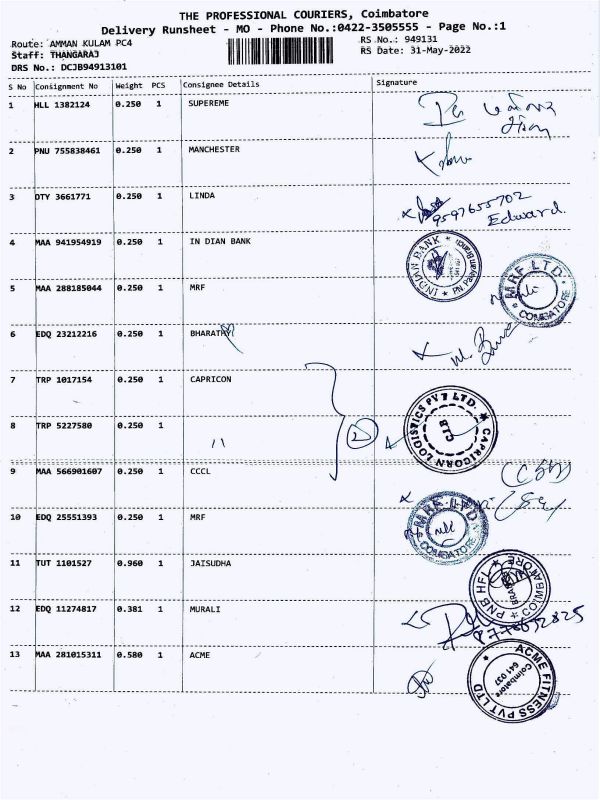 THE PROFESSIONAL COURIERS, Coimbatore
Delivery Runsheet - MO - Phone No.:0422-3505555 - Page No.:1
Route: AMMAN KULAM PC4
RS No.: 949131
Staff: THANGARAJ
RS Date: 31-May-2022
DRS No.: DCJB94913101
S No Consignment No Weight PCS Consignee Details Signature
1 HLL 1382124 0.250 1 SUPEREME
2 PNU 755838461 0.250 1 MANCHESTER
3 DTY 3661771 0.250 1 LINDA
9597655702
Edward.
4 MAA 941954919 0.250 1 IN DIAN BANK
INDIAN BANK
5 MAA 288185044 0.250 1 MRF
MRF LTD
COIMBATORE
6 EDQ 23212216 0.250 1 BHARATHY
7 TRP 1017154 0.250 1 CAPRICON
8 TRP 5227580 0.250 1 "
2
CAPRICORN LOGISTICS PVT LTD.
CLB
9 MAA 566901607 0.250 1 CCCL
10 EDQ 25551393 0.250 1 MRF
MRF LTD
COIMBATORE
11 TUT 1101527 0.960 1 JAISUDHA
PNB HFL
COIMBATORE
12 EDQ 11274817 0.381 1 MURALI
13 MAA 281015311 0.580 1 ACME
ACME FITNESS PVT LTD
Coimbatore
641 037